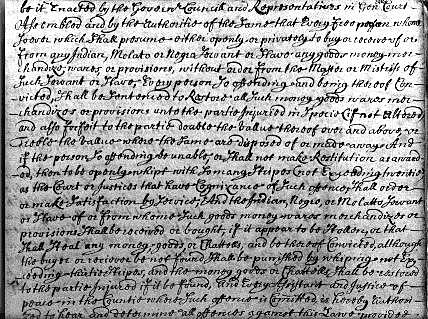 be it Enacted by the Govern:r Council and Representatives in Gen: Court
Assembled and by the Authoritie of the same that Every free person whom
soever which shall presume either openly or privately to buy or receive of or
from any Indian, Molato or Negro servant or slave any goods money mer-
chandize wares, or provisions, without order from the Master or Mistress of
such servant or slave, Every person so offending and being thereof Con-
victed, shall be sentenced to Restore all such money goods wares mer-
chandizes or provisions unto the partie Injured in Specie (if not altered)
and also forfeit to the partie double the value thereof over and above, or
treble the value where the same are disposed of or made away. And
if the person so offending be unable, or shall not make Restitution as award-
ed, then to be openly whipt with so many stripes not Exceeding twentie
as the Court or Justices that have Cognizance of such offence shall order
or make Satisfaction by Service. And the Indian, Negro, or Molatto, servant
or slave of or from whome such goods money wares merchandizes or
provisions shall be received or bought, if it appear to be stolen, or that
shall steal any money, goods, or Chattells, and be thereof Convicted, although
the buyer or receiver be not found, shall be punished by whiping not Ex-
ceeding thirtie stripes, and the money goods or Chattells shall be restored
to the partie Injured if it be found, And Every Assistant and Justice of
peace in the Countie where such offence is Comitted, is hereby Authori-
zed to hear and determine all offences against this Law provided